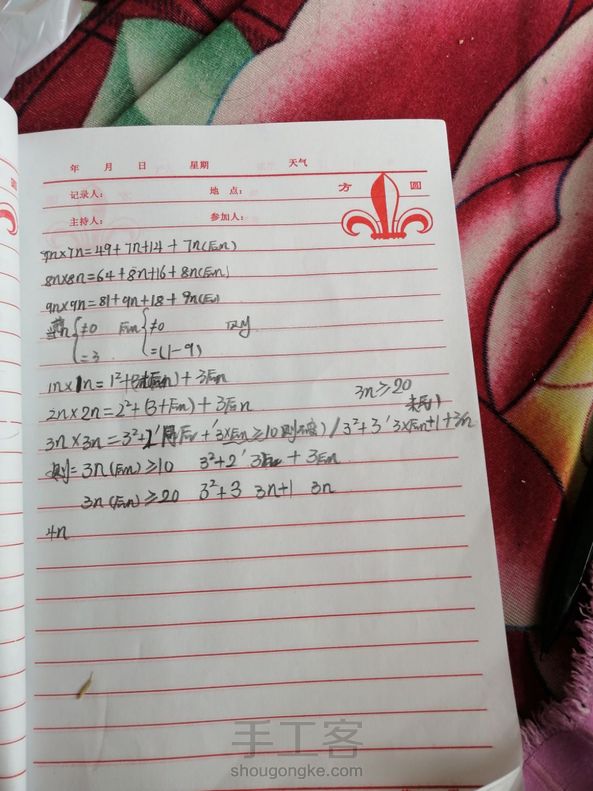 年 月 日 星期 天气
记录人: 地 点: 方 圆
主持人: 参加人:
7n×7n=49+7n+14+7n(En)
8n×8n=64+8n+16+8n(En)
9n×9n=81+9n+18+9n(En)
当n {≠0 En {≠0 则
=3 =(1-9)
1n×1n=1²+ +3En
2n×2n=2²+(3+En)+3En
3n≥20
3n×3n=3²+2' +'3×En≥10则 )/3²+3'3×En+1+3n
则=3n(En)≥10 3²+2'3En+3En
3n(En)≥20 3²+3 3n+1 3n
4n
手工客
shougongke.com